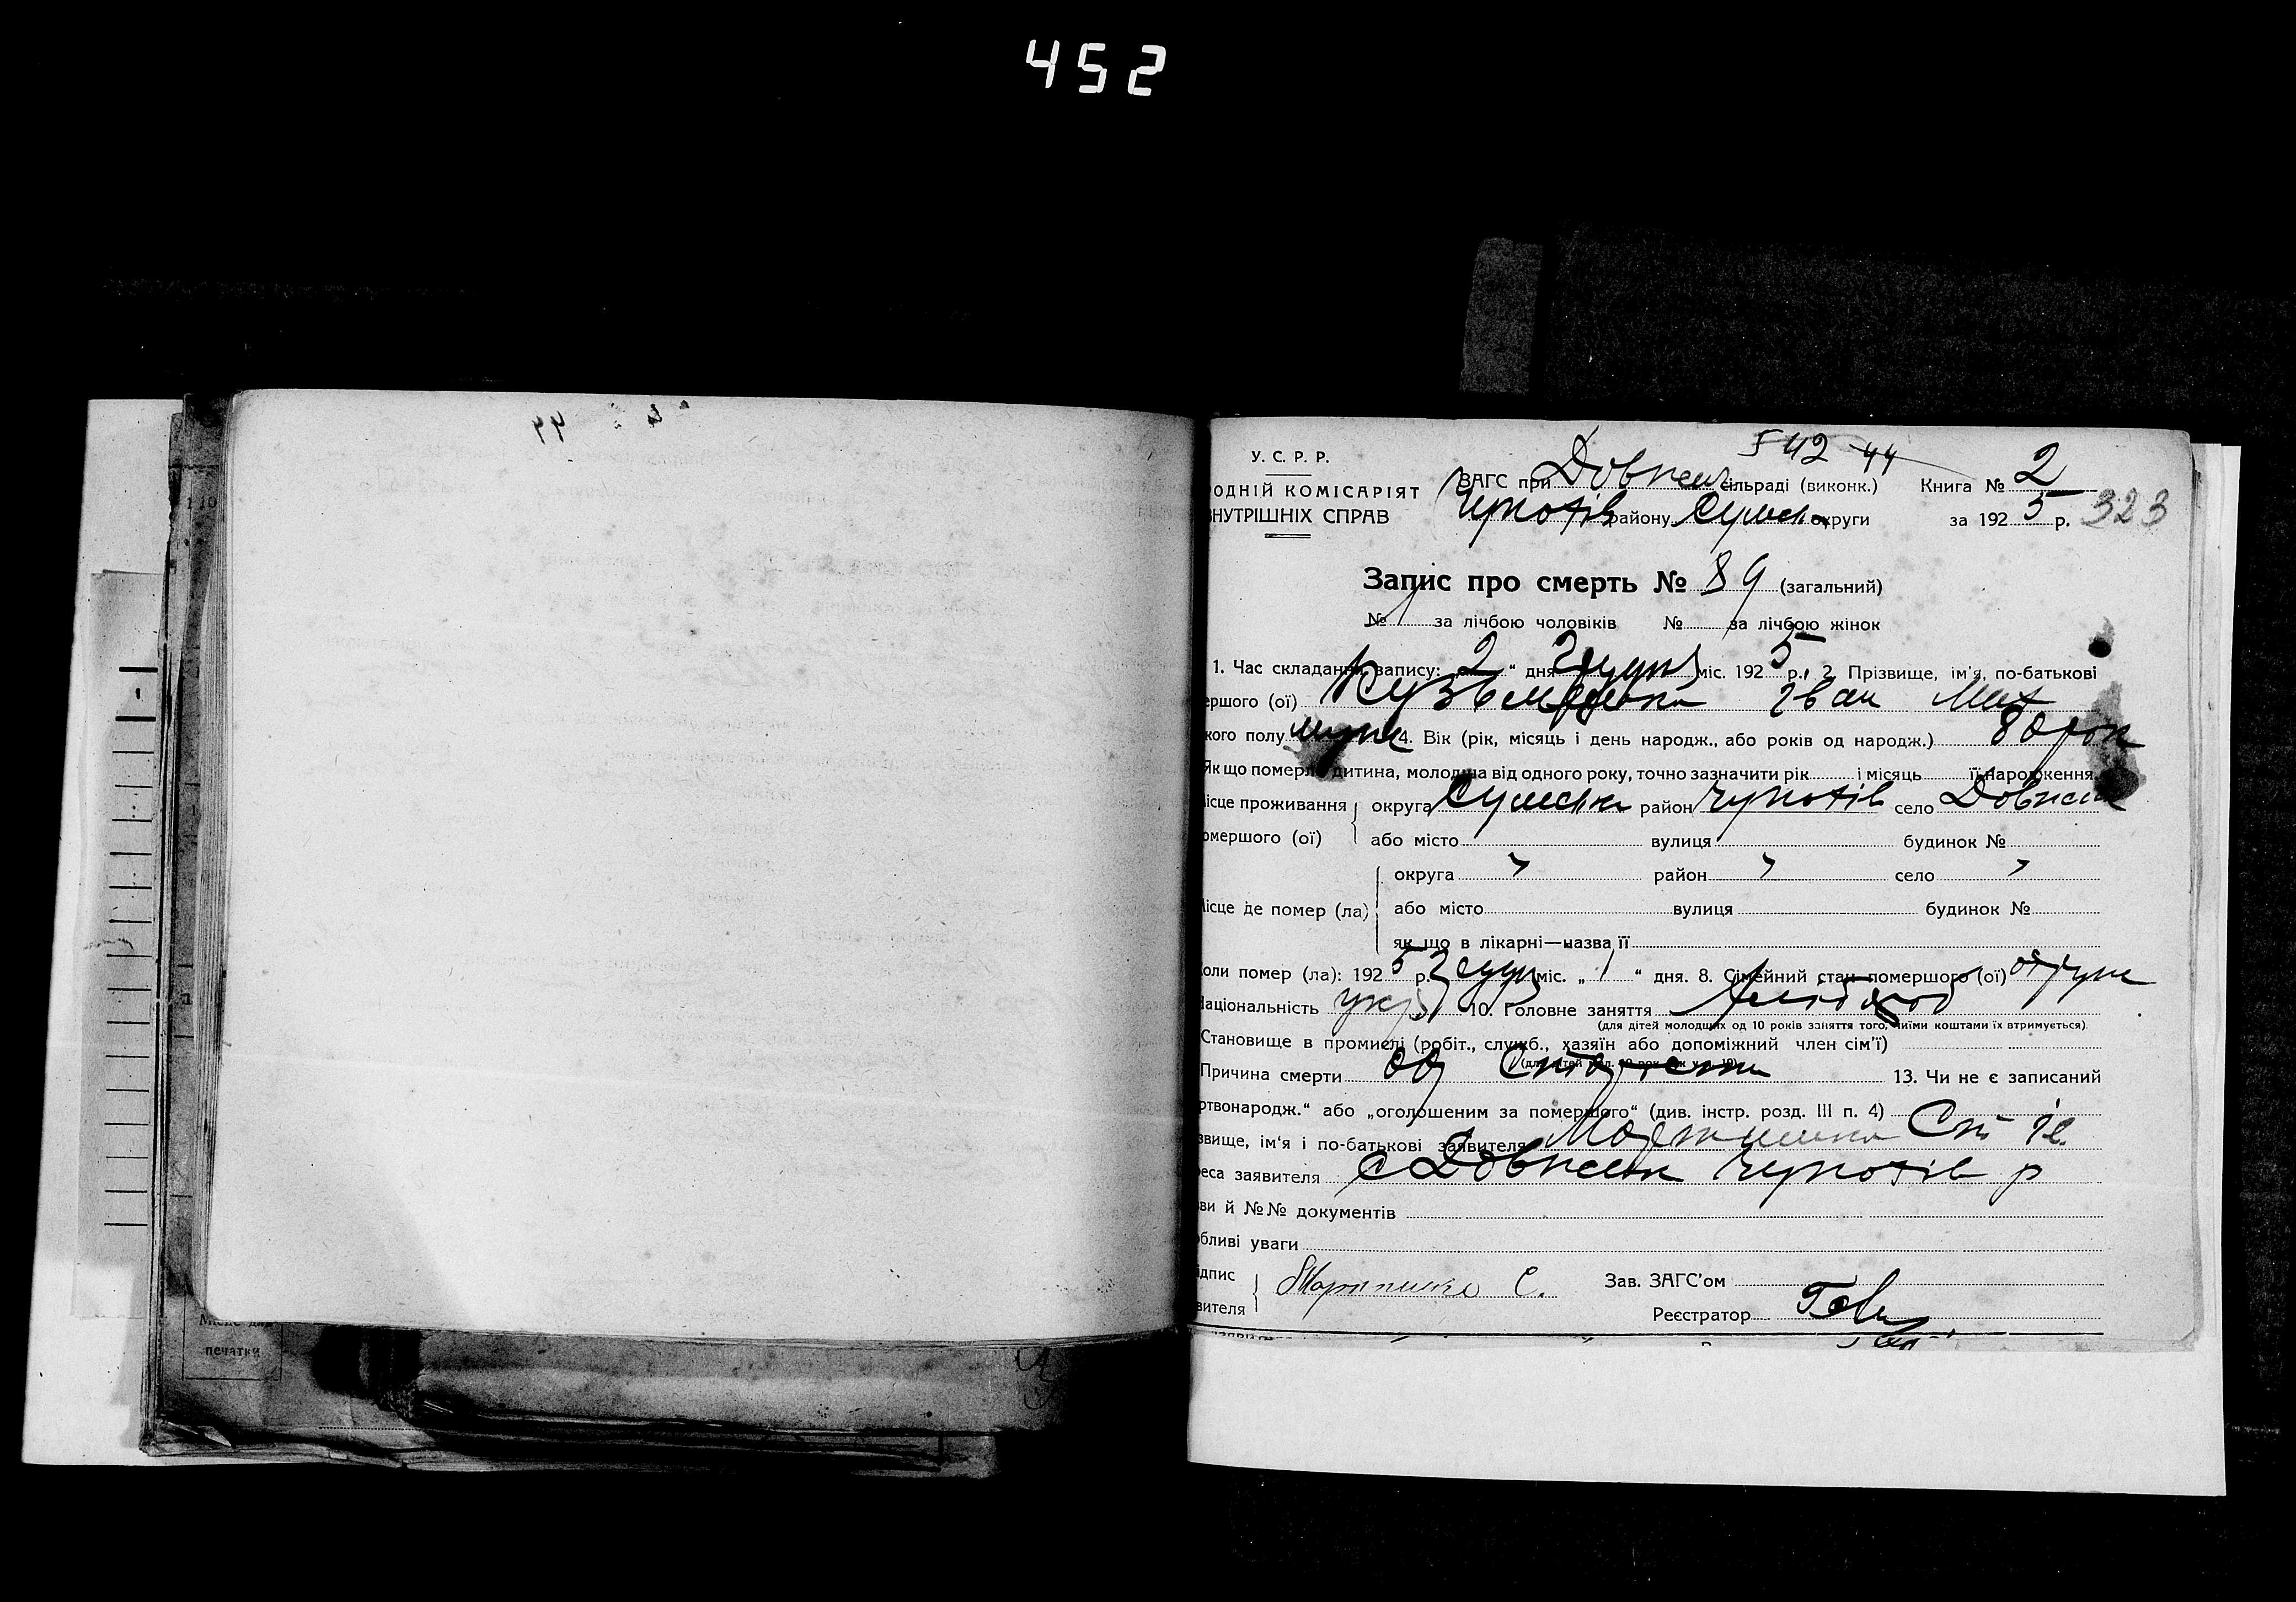 452
У. С. Р. Р.
ОДНІЙ КОМІСАРІЯТ
НУТРІШНІХ СПРАВ
ЗАГС при Довжен сільраді (виконк.) Книга № 2
району Сумськ округи за 1925 р. 323
Запис про смерть № 89 (загальний)
№ за лічбою чоловіків № за лічбою жінок
1. Час складання запису: 2 " дня Грудня міс. 1925 р. 2. Прізвище, ім'я, по-батькові
ершого (ої) Іван Мих
кого полу муж 4. Вік (рік, місяць і день народж., або років од народж.) 80 рок
Як що померла дитина, молодша від одного року, точно зазначити рік і місяць її народження
ісце проживання округа Сумська район село Довжен
омершого (ої) або місто вулиця будинок №
округа " район " село "
ісце де помер (ла) або місто вулиця будинок №
як що в лікарні—назва її
оли помер (ла): 1925 р. Грудн міс. „ 1 " дня. 8. Сімейний стан помершого (ої)
Національність укр 10. Головне заняття хлібороб
(для дітей молодших од 10 років заняття того, чиїми коштами їх втримується)
Становище в промислі (робіт., служб., хазяїн або допоміжний член сім'ї)
Причина смерти од старости 13. Чи не є записаний
ртвонародж." або „оголошеним за помершого" (див. інстр. розд. III п. 4)
звище, ім'я і по-батькові заявителя
реса заявителя с Довжен р
ви й №№ документів
обливі уваги
ідпис
вителя С.
Зав. ЗАГС'ом
Реєстратор
печатки